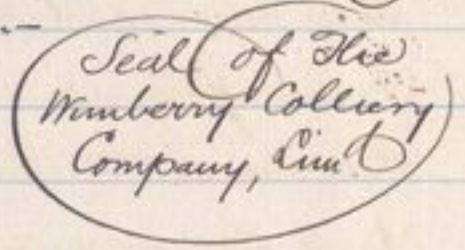 Seal of The
Wimberry Colliery
Company, Limd